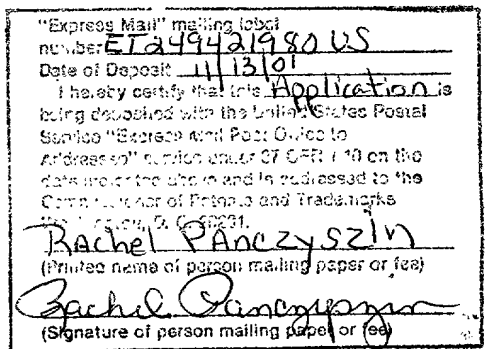 "Express Mail" mailing label
number ET249421980 US
Date of Deposit 11/13/01
I hereby certify that this Application is
being deposited with the United States Postal
Service "Express Mail Post Office to
Addressee" service under 37 CFR 1.10 on the
date indicated above and is addressed to the
Commissioner of Patents and Trademarks
D. C. 20231.
RAchel PAnczySZiN
(Printed name of person mailing paper or fee)
Rachel Panczyszin
(Signature of person mailing paper or fee)